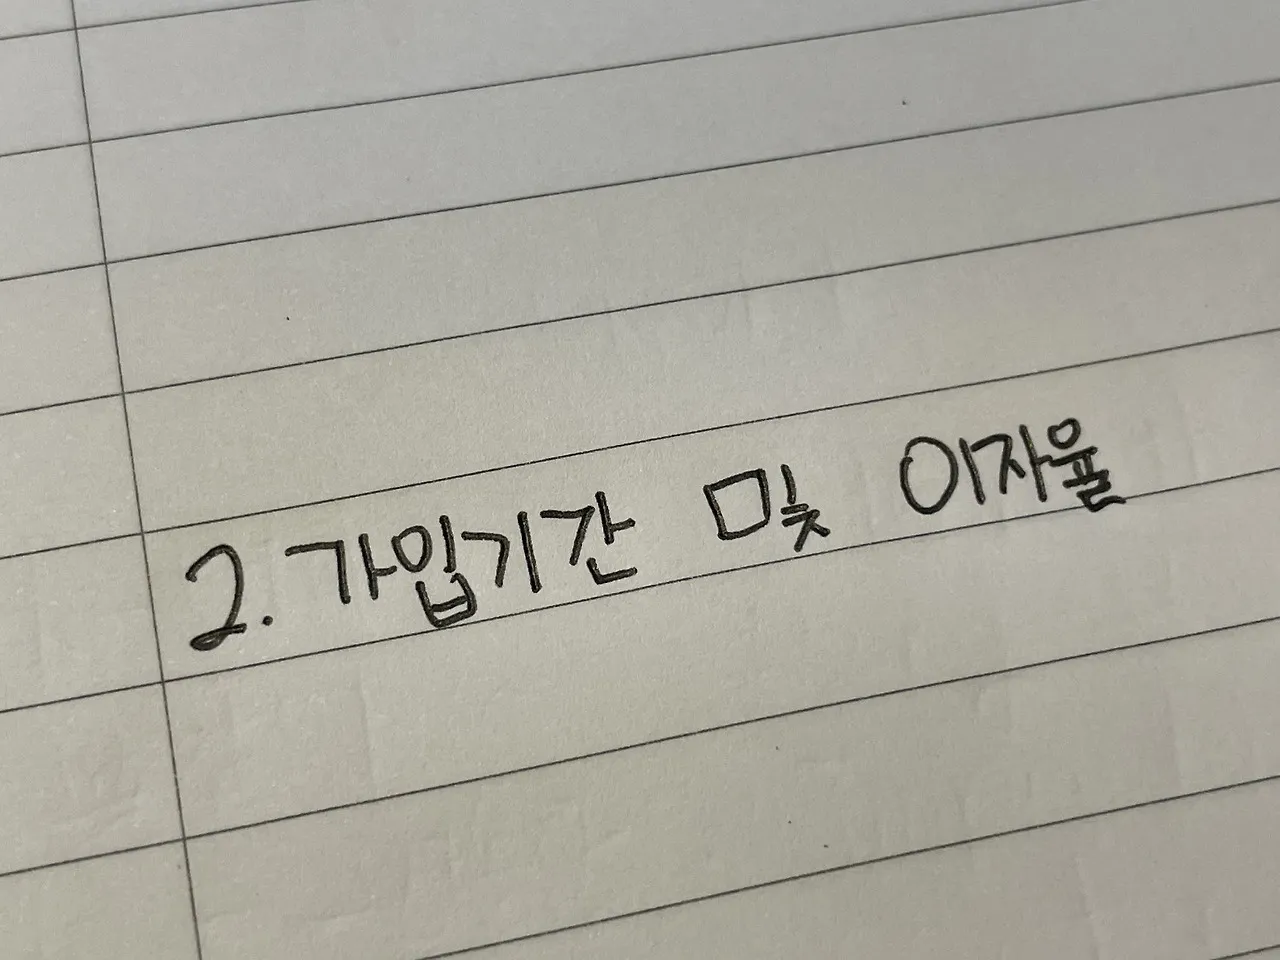 2. 가입기간 및 이자율